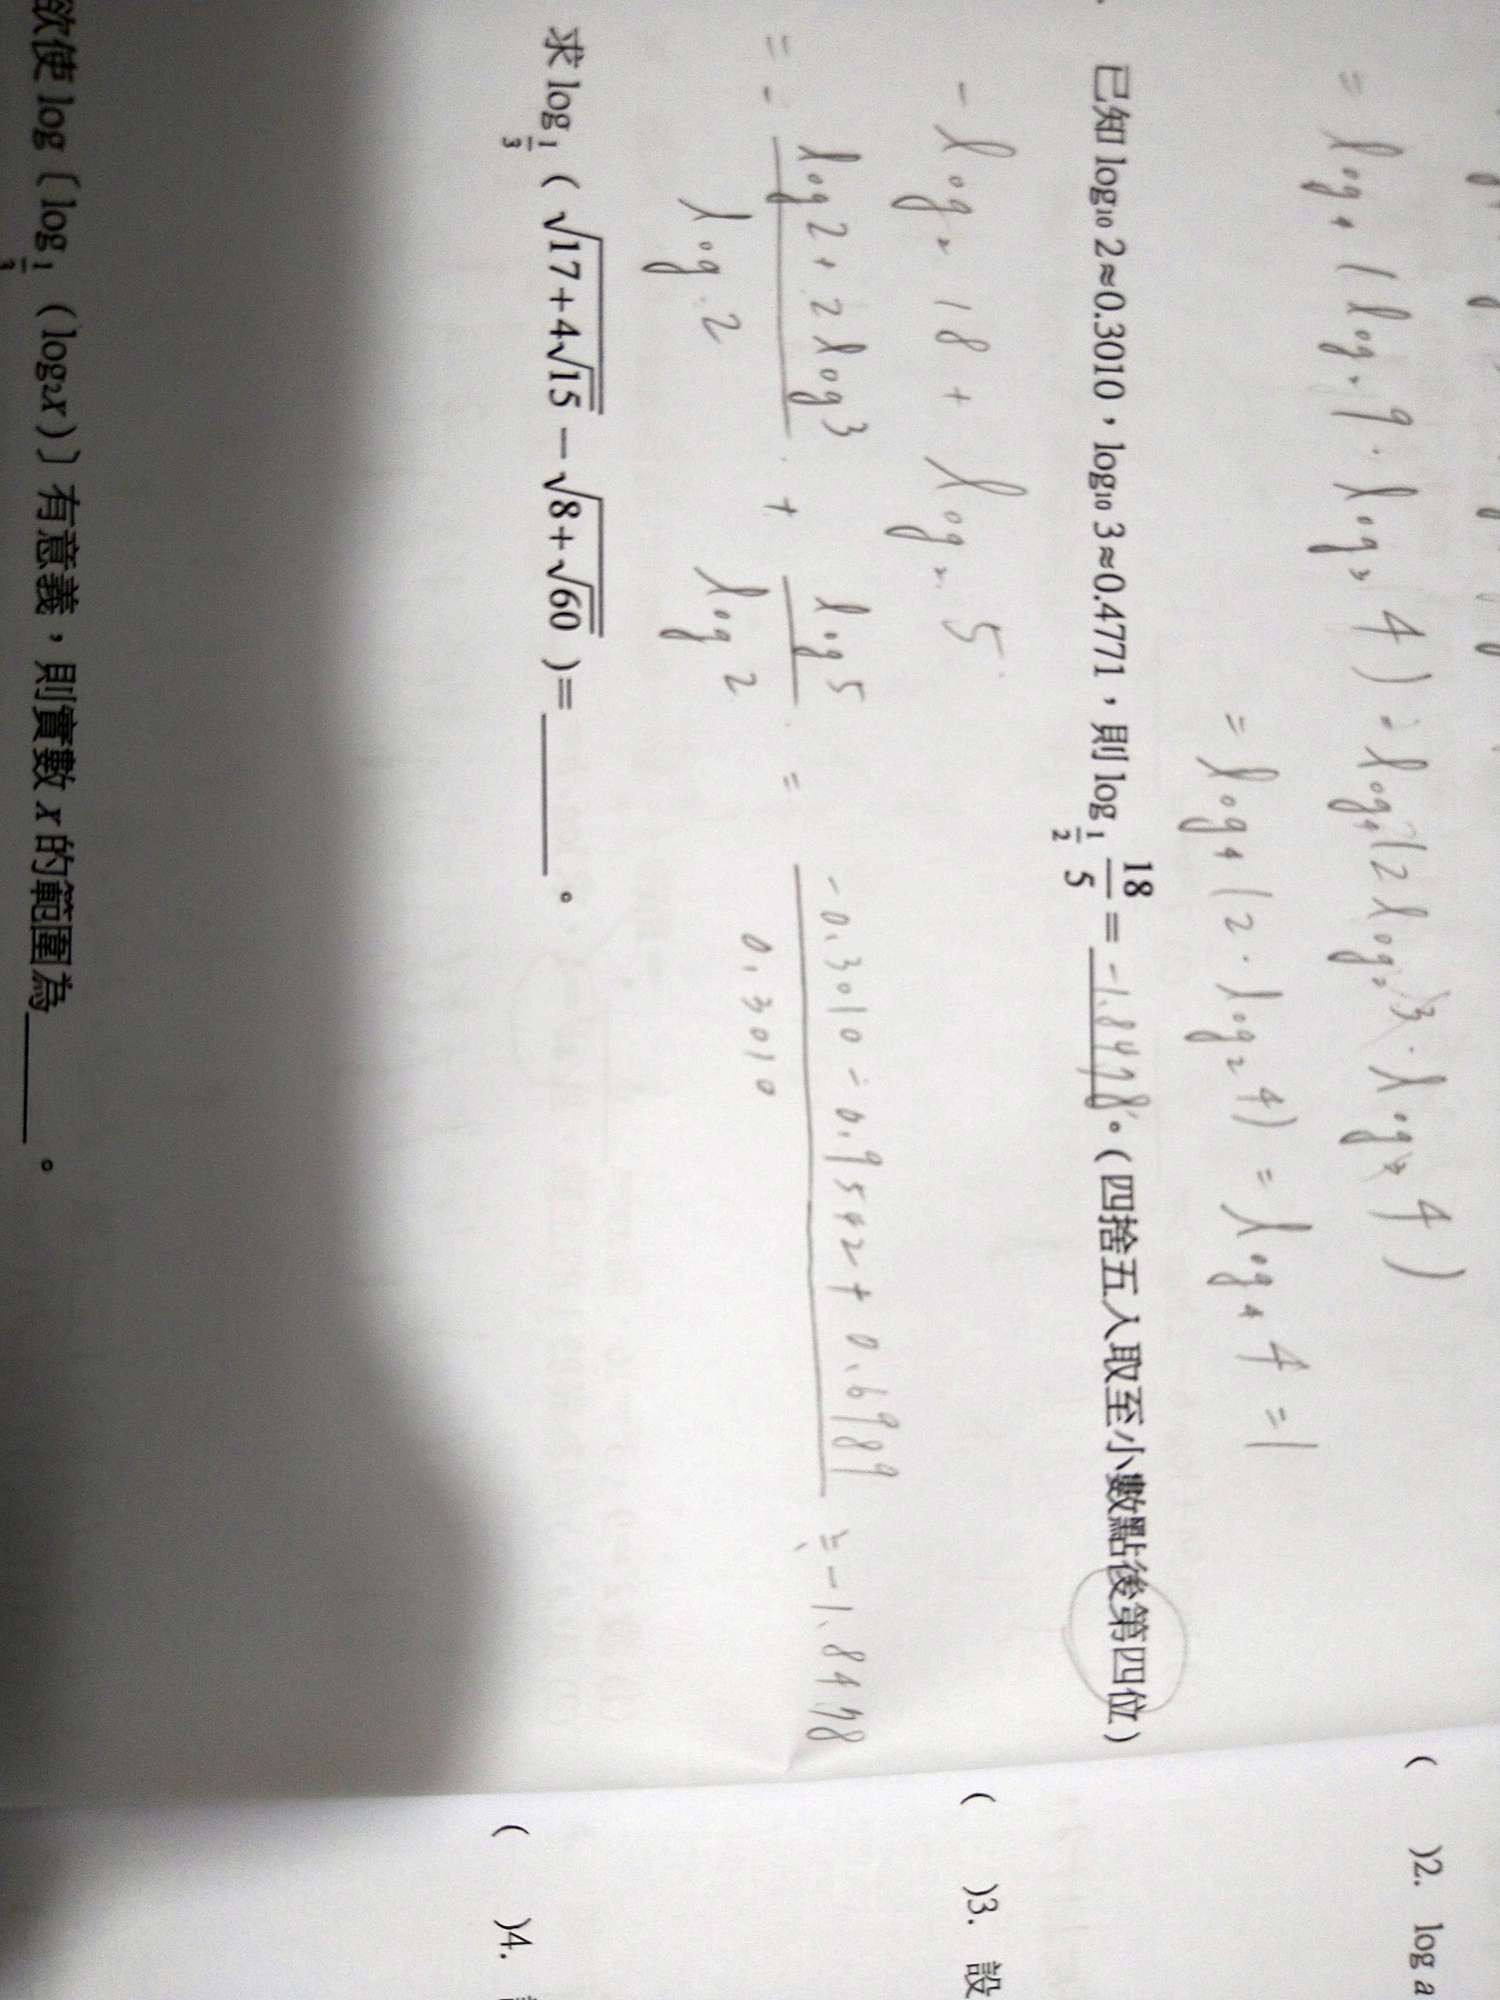 = log₄(log₂9·log₃4) = log₄(2log₂3·log₃4)
= log₄(2·log₂4) = log₄4 = 1
已知 log₁₀ 2≈0.3010，log₁₀ 3≈0.4771，則 log_{1/2} 18/5 = -1.8478。(四捨五入取至小數點後第四位)
- log₂18 + log₂5
= - (log2+2log3)/log2 + log5/log2 = (-0.3010-0.9542+0.6989)/0.3010 ≒ -1.8478
求 log_{1/3} ( √(17+4√15) − √(8+√60) )=______。
欲使 log〔log_{1/3}（log₂x）〕有意義，則實數 x 的範圍為______。
( )2. log a
( )3. 設
( )4.